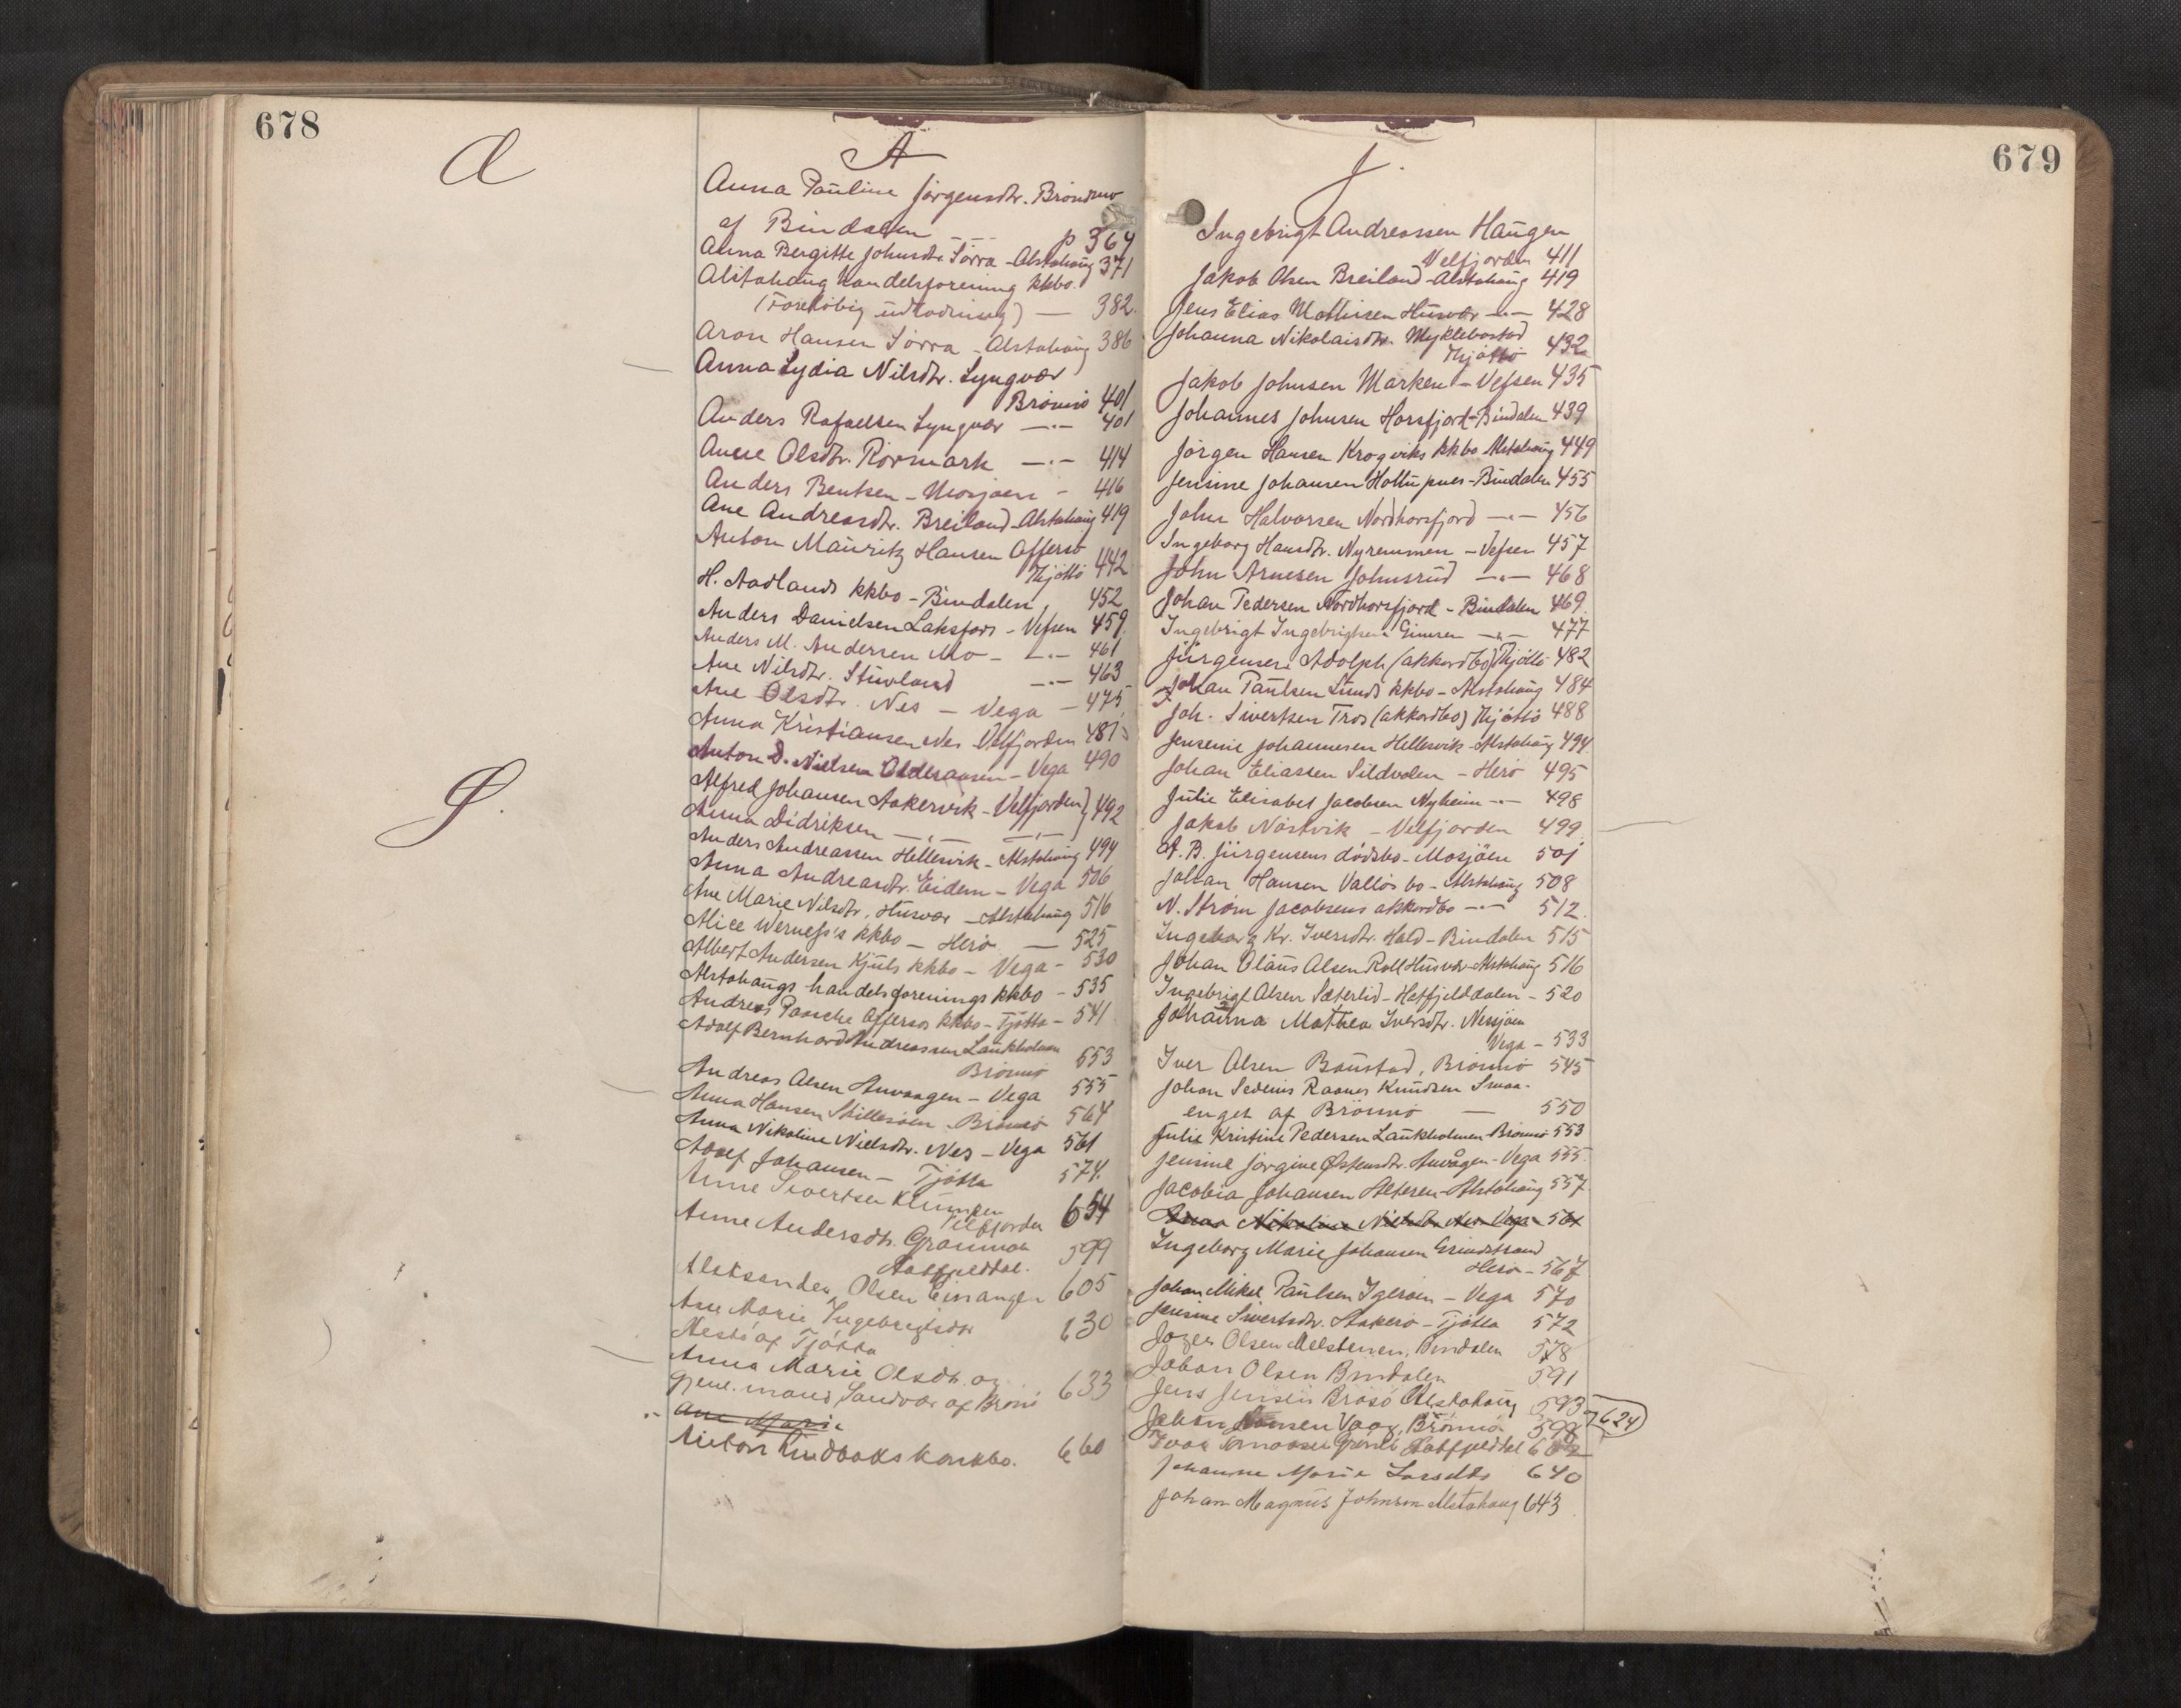 678
A
Anna Pauline Jörgensdtr. Brönmo
af Bindalen - - - p 364
Anna Bergitte Johnsdtr Sörra - Alstahaug 371
Alstahaug handelsforening kkbo.
(Foreløbig udlodning) — 382.
Aron Hansen Sörra - Alstahaug 386
Anna Lydia Nilsdtr. Lyngvær
Brönnö 401
Anders Rafaelsen Lyngvær —"— 401
Anne Olsdtr. Rörmark —"— 414
Anders Bentsen - Mosjøen - 416
Ane Andreasdtr. Breiland - Alstahaug 419
Anton Mauritz Hansen Offersö
Thjöttö 442
H. Aadlands kkbo - Bindalen 452
Anders Danielsen Laksfors - Vefsen 459.
Anders M. Andersen Mo - —"— 461
Ane Nilsdtr. Stuvland —"— 463
Ane Olsdtr. Nes — Vega — 475
Anna Kristiansen Nes Velfjorden 481
Anton D. Nielsen Olderaasen - Vega 490
Alfred Johansen Aakervik - Velfjorden } 492
Anna Didriksen —"— —"—
Anders Andreassen Hellesvik - Alstahaug 494
Anna Andreasdtr. Eidem - Vega 506
Ane Marie Nilsdtr. Husvær - Alstahaug 516
Alice Werness's kkbo - Herö — 525
Albert Andersen Kjuls kkbo - Vega - 530
Alstahaugs handelsforenings kkbo - 535
Andreas Paasche Offersøs kkbo - Tjötta - 541
Adolf Bernhard Andreassen Laukholmen
Brönnö 553
Andreas Olsen Anvaagen - Vega 555
Anna Hansen Skillesöen Brönnö 564
Anna Nikoline Nielsdtr. Nes - Vega 561
Adolf Johansen - Tjötta 574.
Anne Sivertsen
Velfjorden 654
Anne Andersdtr.
Hatfjelddal. 599
Aleksander Olsen 605
Ane Marie Ingebrigtsdtr
af Tjötta 630
Anna Marie Olsdtr. og
Sandvær af Brönö 633
Ane Marie
Anton Lindbaks konkbo. 660
S.
679
J.
Ingebrigt Andreassen Haugen
Velfjorden 411
Jakob Olsen Breiland - Alstahaug 419
Jens Elias Mathisen Husvær —"— 428
Johanna Nikolaisdtr. Myklebostad
Thjöttö 432
Jakob Johnsen Marken - Vefsen 435
Johannes Johnsen Horsfjord - Bindalen 439
Jörgen Hansen Krogviks kkbo Alstahaug 449
Jensine Johansen - Bindalen 455
John Halvorsen Nordhorsfjord —"— 456
Ingeborg Hansdtr. Nyremmen - Vefsen 457
John Arnesen Johnsrud —"— 468
Johan Pedersen Nordhorsfjord - Bindalen 469.
Ingebrigt Ingebrigtsen —"— 477
Jürgensen Adolph (akkordbo) Thjöttö 482
Johan Paulsen Lunds kkbo - Alstahaug 484
Joh. Sivertsen Tros (akkordbo) Thjöttö 488
Jensenie Johannesen Hellesvik - Alstahaug 494
Johan Eliassen Sildvolen - Herö 495
Julie Elisabet Jacobsen Nyheim —"— 498
Jakob Nöstvik - Velfjorden 499.
A. B. Jürgensens dödsbo - Mosjöen 501
Johan Hansen Vallös bo - Alstahaug 508
N. Ström Jacobsens akkordbo —"— 512.
Ingeborg Kr. Iversdtr. Hald - Bindalen 515
Johan Olaus Olsen Roll Husvær - Alstahaug 516
Ingebrigt Olsen Sæterlid - Hatfjelddalen - 520
Johanna Mathea Iversdtr. Nessjøen
Vega - 533
Iver Olsen Baustad, Brönnö 545
Johan Sedenius Raanes Knudsen Smaa-
enget af Brönnö — 550
Julie Kristine Pedersen Laukholmen Brönnö 553
Jensine Jørgine Østensdtr. Anvågen - Vega 555.
Jacobia Johansen - Alstahaug 557.
Anna Nikoline Nielsdtr Nes Vega 561
Ingeborg Marie Johansen Grindstrand
Herö - 567
Johan Mikal Paulsen Igerøen - Vega 570
Jensine Sivertsdtr. Stokerö - Tjötta 572
Olsen Melstenen, Bindalen 578
Johan Olsen Bindalen 591
Jens Jensen Brasö Alstahaug 593
Johan Hansen Vaag, Brönnö 598 624
Hatfjelddal 602
Johanne Marie Larsdtr 640
Johan Magnus Johnsen Alstahaug 643